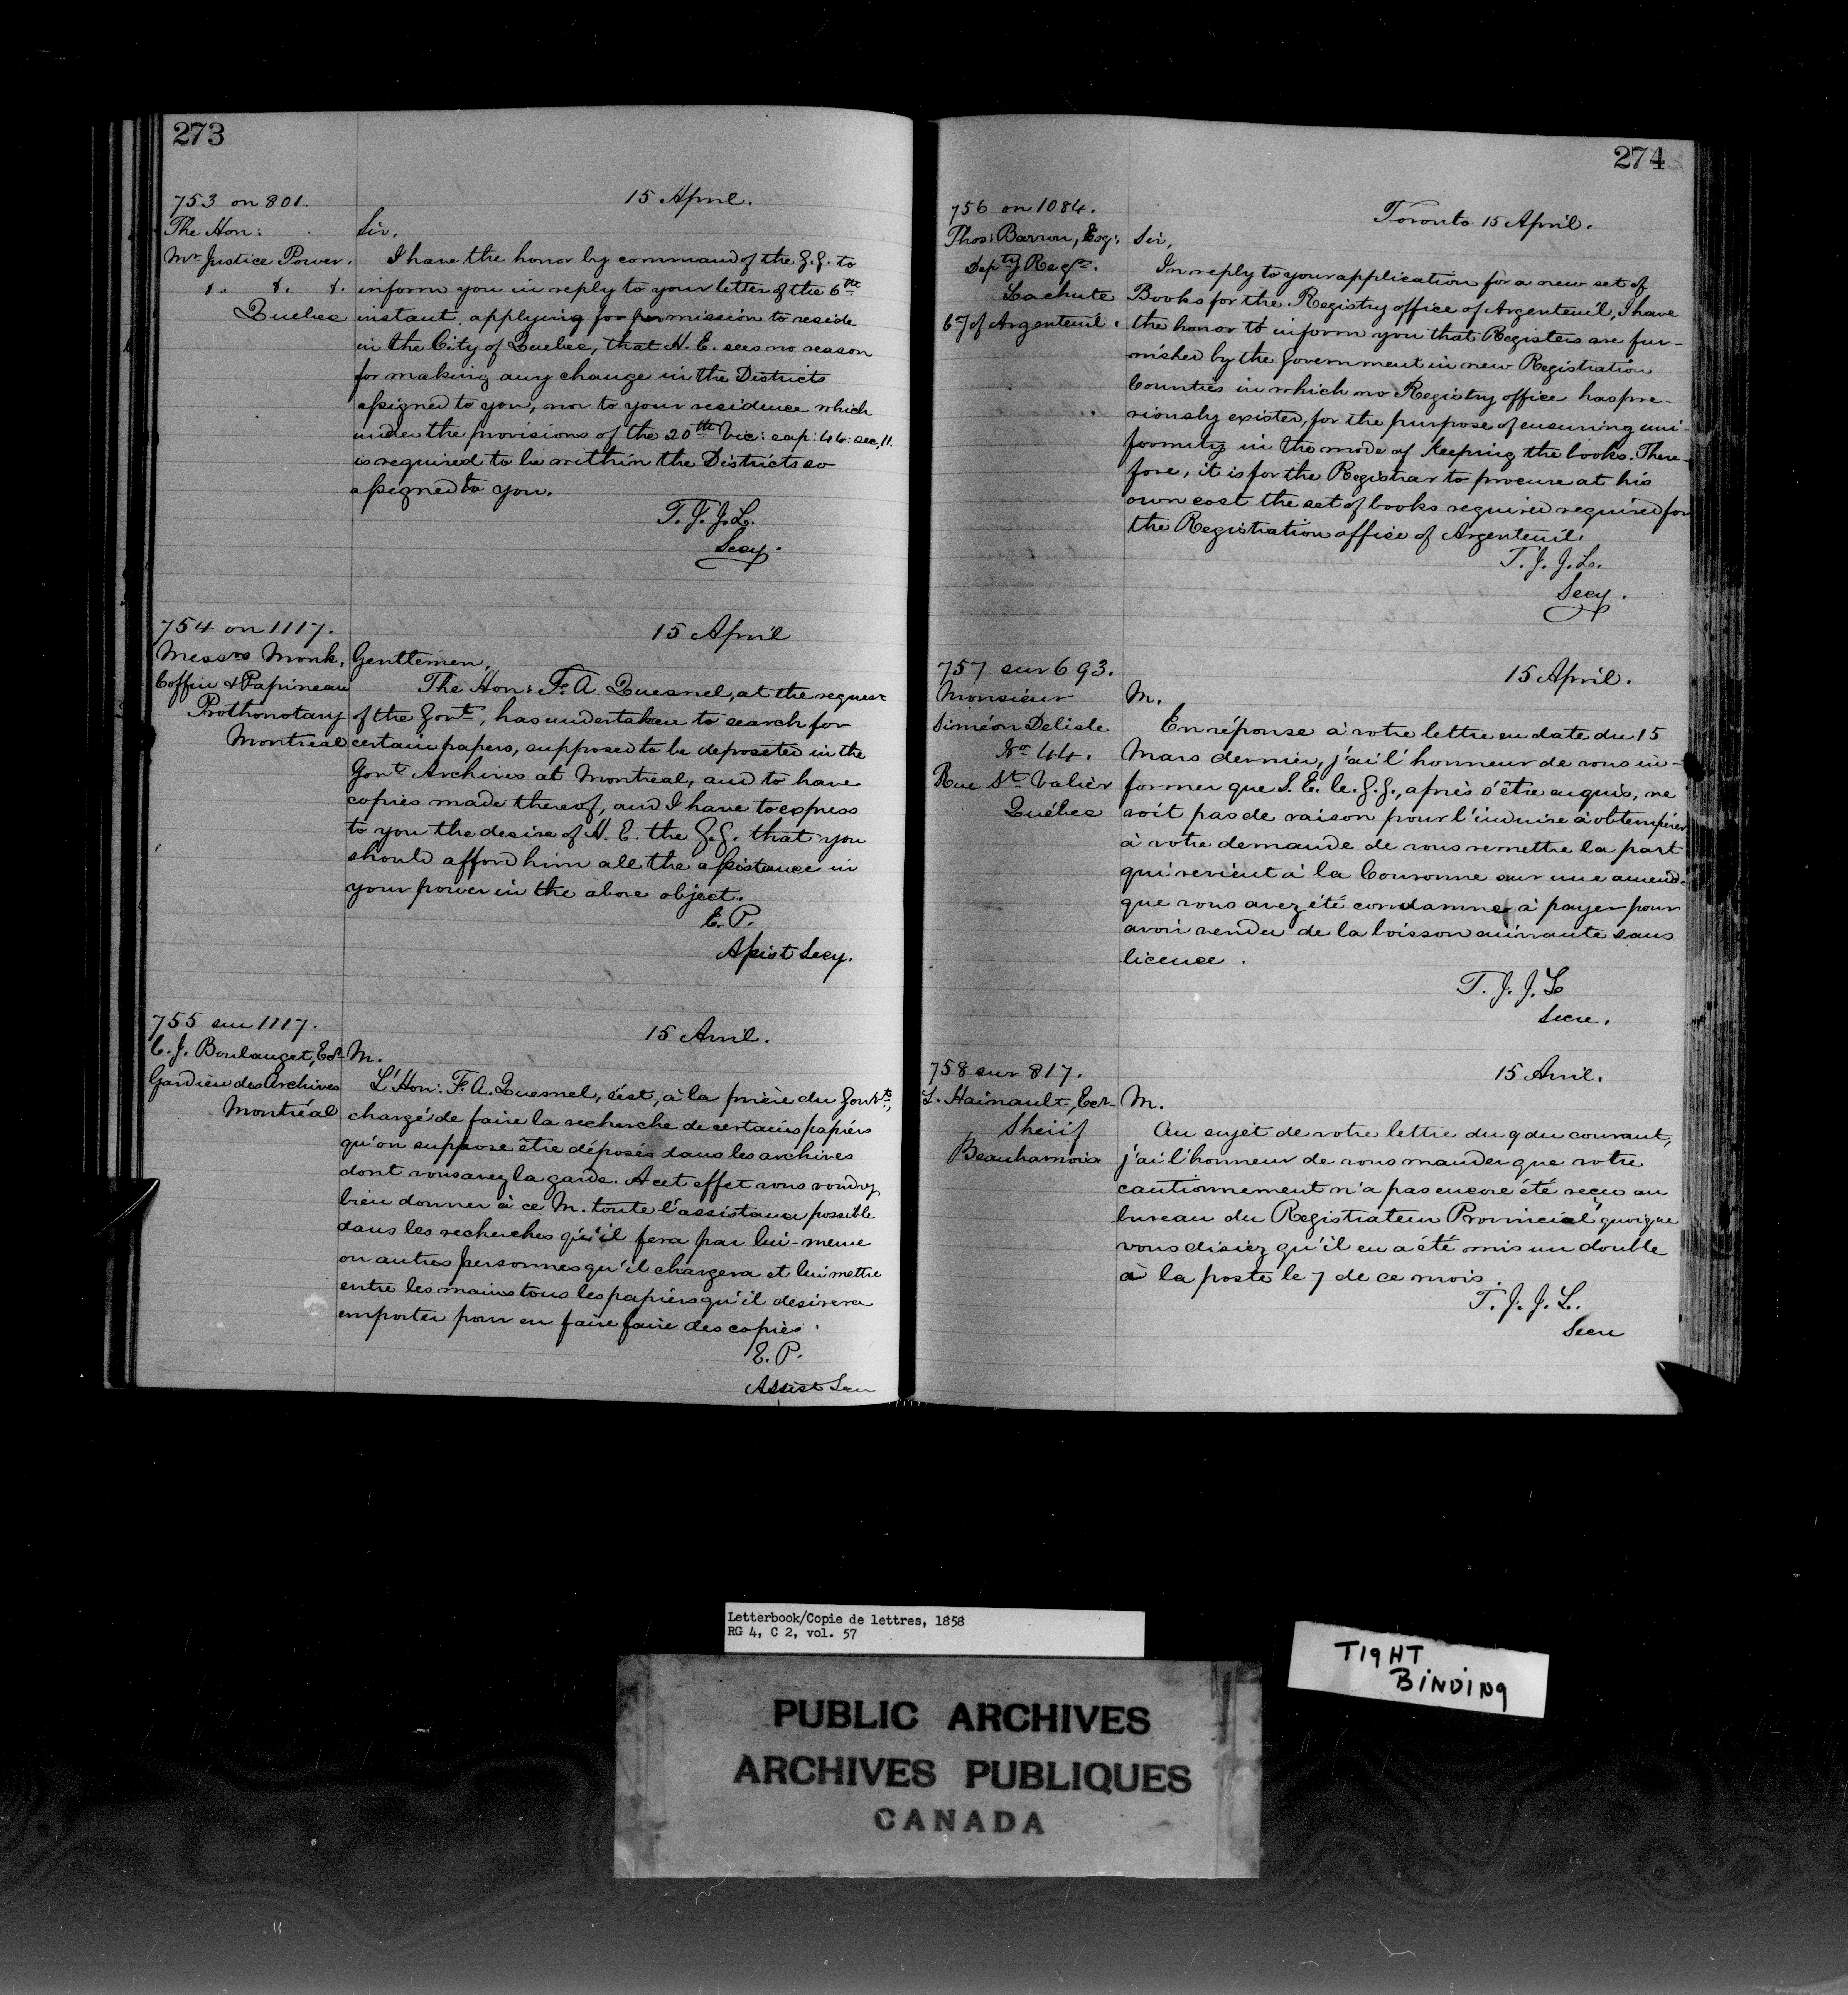 273
753 on 801.
15 April.
The Hon:
Mr Justice Power.
&. &. &.
Quebec
Sir,
I have the honor by command of the G.G. to
inform you in reply to your letter of the 6th
instant applying for permission to reside
in the City of Quebec, that H. E. sees no reason
for making any change in the Districts
assigned to you, nor to your residence which
under the provisions of the 20th Vic: cap: 44: sec, 11.
is required to be within the Districts so
assigned to you.
T. J. J. L.
Secy.
754 on 1117.
15 April
Messrs Monk,
Coffin & Papineau
Prothonotary
Montreal
Gentlemen,
The Hon: F. A. Quesnel, at the request
of the Govt, has undertaken to search for
certain papers, supposed to be deposited in the
Govt Archives at Montreal, and to have
copies made thereof, and I have to express
to you the desire of H. E. the G.G. that you
should afford him all the assistance in
your power in the above object.
E. P.
Assist Secy.
755 sur 1117.
15 Avril.
C. J. Boulanget, Ecr
Gardien des Archives
Montréal
M.
L'Hon: F. A. Quesnel, s'est, à la prière du Gouvt,
chargé de faire la recherche de certains papiers
qu'on suppose être déposés dans les archives
dont vous avez la garde. A cet effet vous voudrez
bien donner à ce M. toute l'assistance possible
dans les recherches qu'il fera par lui-meme
ou autres personnes qu'il chargera et lui mettre
entre les mains tous les papiers qu'il desirera
emporter pour en faire faire des copies.
E. P.
Assist Secre
274
756 on 1084.
Toronto 15 April.
Thos: Barron, Esq:
Depty Regr.
Lachute
Cy of Argenteuil.
Sir,
In reply to your application for a new set of
Books for the Registry office of Argenteuil, I have
the honor to inform you that Registers are fur-
nished by the Government in new Registration
Counties in which no Registry office has pre-
viously existed, for the purpose of ensuring uni-
formity in the mode of keeping the books. There-
fore, it is for the Registrar to procure at his
own cost the set of books required required for
the Registration office of Argenteuil.
T. J. J. L.
Secy.
757 sur 693.
15 April.
Monsieur
Siméon Delisle
No 44.
Rue St Valier
Québec
M.
En réponse à votre lettre en date du 15
Mars dernier, j'ai l'honneur de vous in-
former que S. E. le. G.G., après s'être enquis, ne
voit pas de raison pour l'induire à obtempérer
à votre demande de vous remettre la part
qui revient à la Couronne sur une amende
que vous avez été condamné à payer pour
avoir vendu de la boisson enivrante sans
licence.
T. J. J. L
Secre.
758 sur 817.
15 Avril.
L. Hainault, Ecr
Shérif
Beauharnois
M.
Au sujet de votre lettre du 9 du courant,
j'ai l'honneur de vous mander que votre
cautionnement n'a pas encore été reçu au
bureau du Registrateur Provincial quoique
vous disiez qu'il en a été mis un double
à la poste le 7 de ce mois.
T. J. J. L.
Secre
Letterbook/Copie de lettres, 1858
RG 4, C 2, vol. 57
TIGHT
BINDING
PUBLIC ARCHIVES
ARCHIVES PUBLIQUES
CANADA